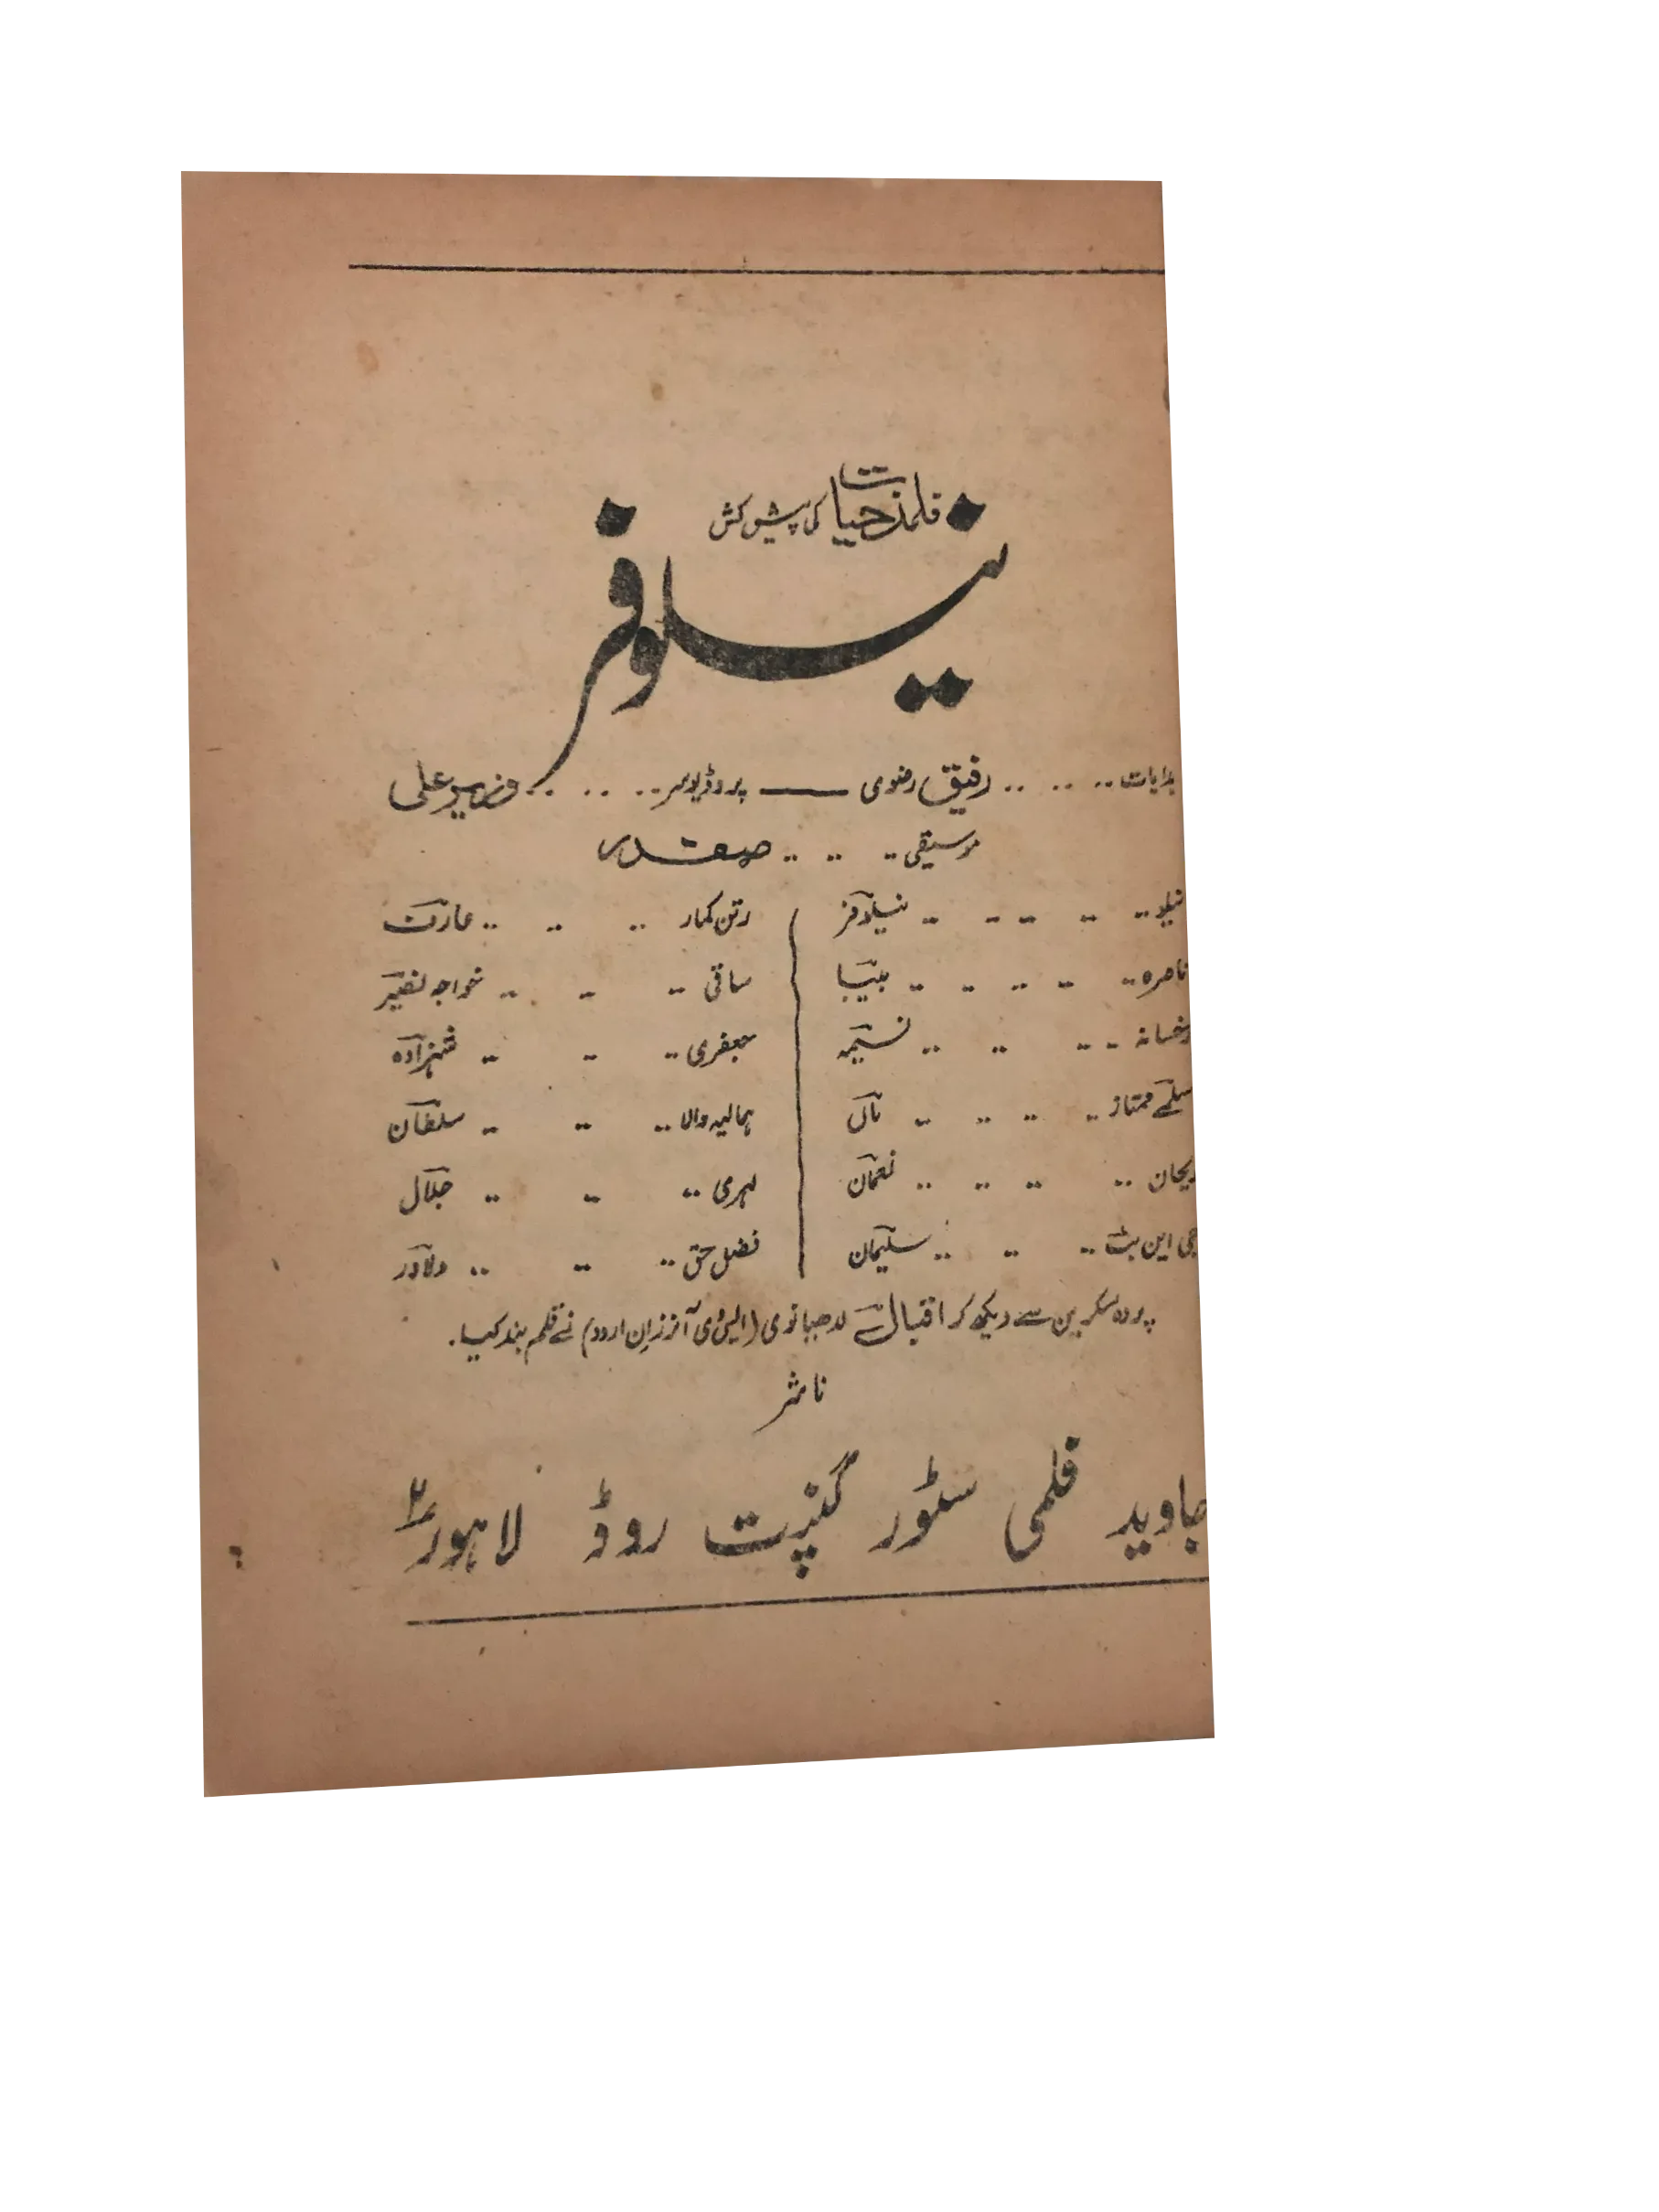 فلمز حیات کی پیش کش
نیلوفر
ہدایات .. .. .. رفیق رضوی —— پروڈیوسر .. .. .. وزیر علی
موسیقی .. .. .. صفدر
نیلو .. .. .. .. .. نیلوفر
رتن کمار .. .. .. عارف
ناصرہ .. .. .. .. .. بیبا
ساقی .. .. .. خواجہ نصیر
رخسانہ .. .. .. نسیمہ
جعفری .. .. .. شہزادہ
سلمے ممتاز .. .. .. ..
ہمالیہ والا .. .. .. سلطان
ریحان .. .. .. .. نعمان
لہری .. .. .. جلال
جی این بٹ .. .. .. سلیمان
فضل حق .. .. .. دلاور
پردہ سکرین سے دیکھ کر اقبال لدھیانوی (ایس ڈی آنرز ان اردو) نے قلم بند کیا۔
ناشر
جاوید فلمی سٹور گنپت روڈ لاہور ۲